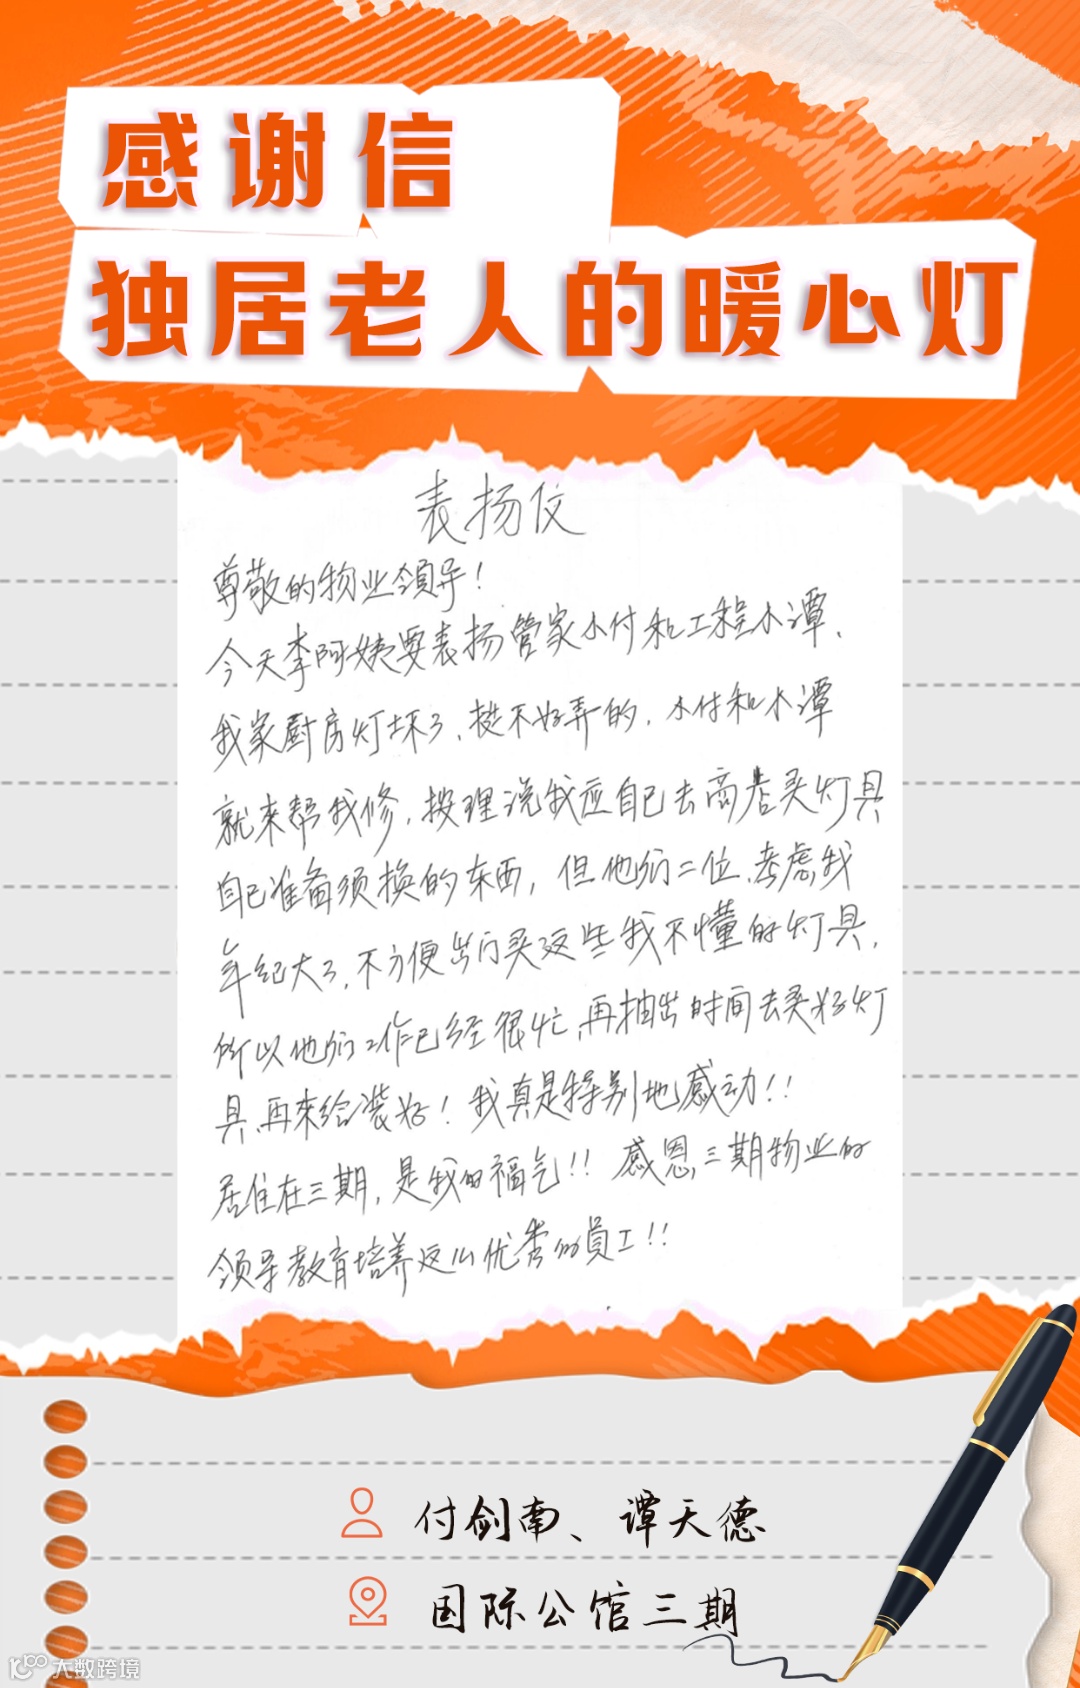 感谢信
独居老人的暖心灯
表扬信
尊敬的物业领导！
今天李阿姨要表扬管家小付和工程小谭，
我家厨房灯坏了，挺不好弄的，小付和小谭
就来帮我修，按理说我应自己去商店买灯具
自己准备须换的东西，但他们二位，考虑我
年纪大了，不方便出门买这些我不懂的灯具，
所以他们工作已经很忙，再抽出时间去买好灯
具，再来给装好！我真是特别地感动！！
居住在三期，是我的福气！！感恩三期物业的
领导教育培养这么优秀的员工！！
付剑南、谭天德
国际公馆三期
大数跨境